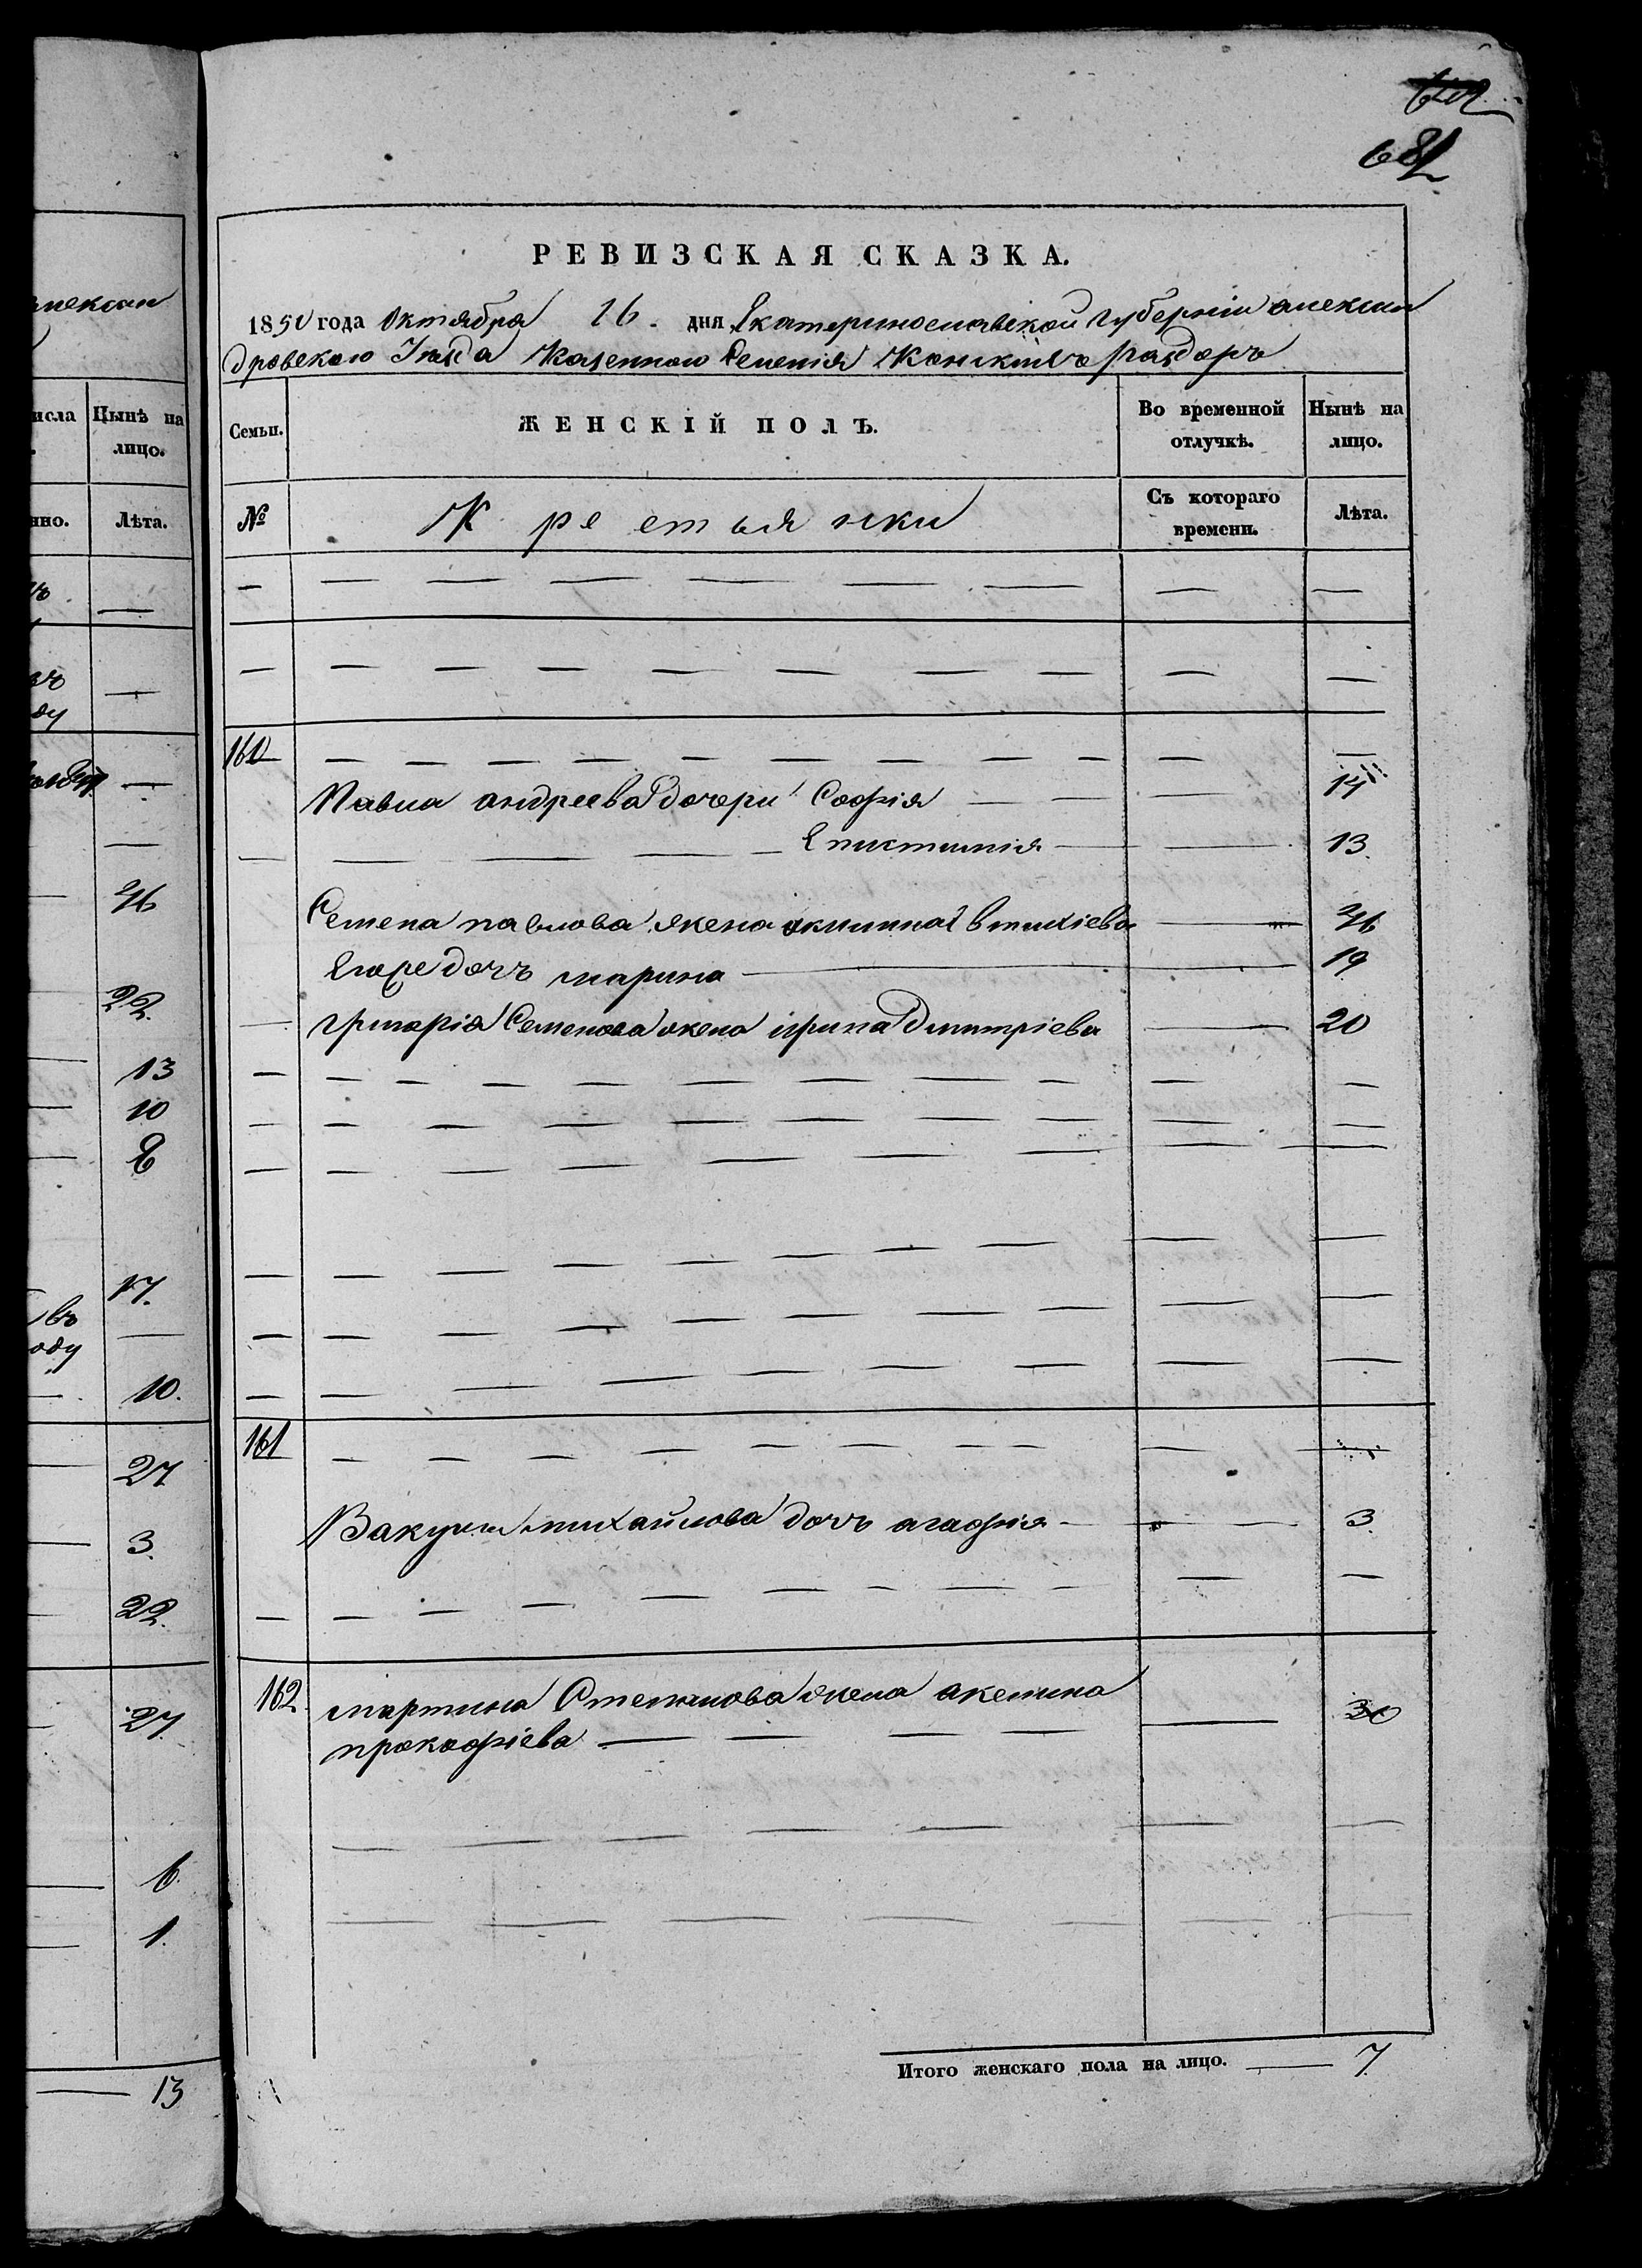 681
РЕВИЗСКАЯ СКАЗКА.
1850 года Октября 16. дня Екатеринославской губерніи Алексан
дровскаго Уезда Казенного Селенія Конскихъ раздоръ
исла Нынѣ на лицо.
Семьи. ЖЕНСКІЙ ПОЛЪ. Во временной отлучкѣ. Нынѣ на лицо.
нно. Лѣта.
№ Крестьянки Съ котораго времени. Лѣта.
ду
160
Павла андреева дочери Софія 14
Епистимія 13
46
Семена павлова жена акилина Евтихіева 46
Егоже дочь марина 19
22.
григорія Семенова жена ірина Дмитріева 20
13
10
8
17.
въ
оду
10.
161
27
Вакулы михайлова дочь агафія 3.
3.
22.
162. мартина Степанова жена акелина 30
27.
прокофіева
6.
1.
Итого женскаго пола на лицо. 7
13